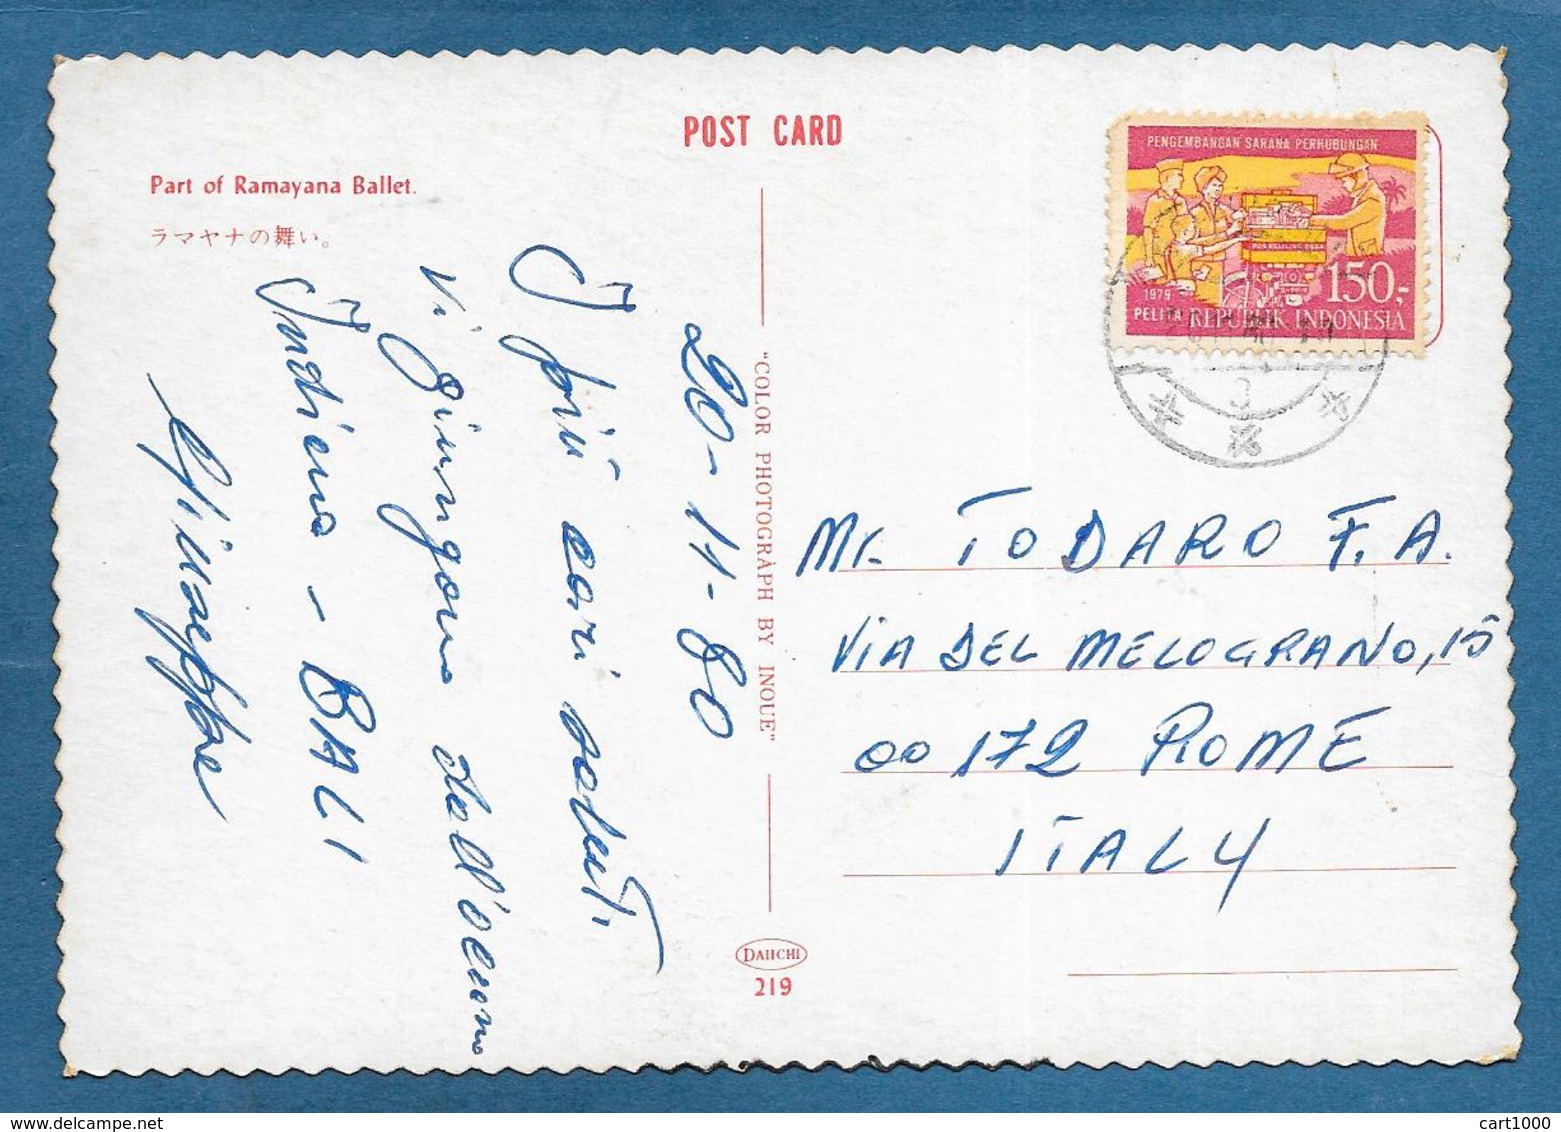 POST CARD
Part of Ramayana Ballet.
ラマヤナの舞い。
PENGEMBANGAN SARANA PERHUBUNGAN
POS KELILING DESA
1979
150,-
PELITA REPUBLIK INDONESIA
3
20-11-80
I più cari saluti
Vi giungano dall'oceano
Indiano - BALI
"COLOR PHOTOGRAPH BY INOUE"
Mr. TODARO F.A.
VIA DEL MELOGRANO, 15
00172 ROME
ITALY
DAIICHI
219
cart1000